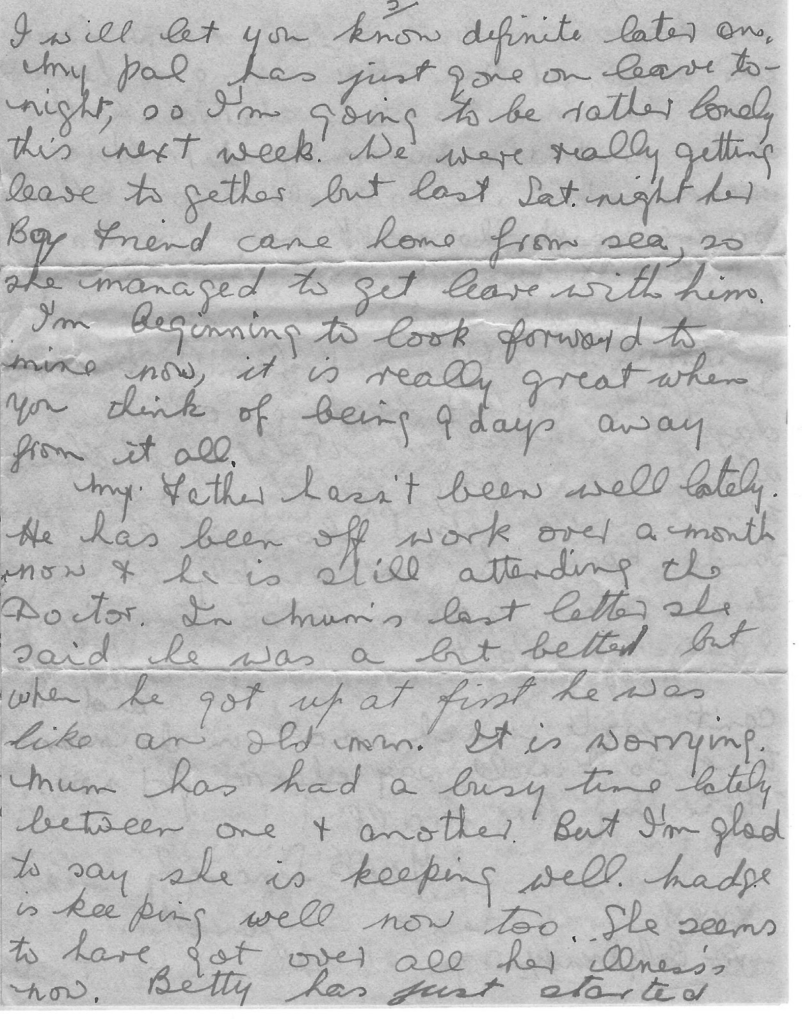 2
I will let you know definite later on.
My pal has just gone on leave to-
night, so I'm going to be rather lonely
this next week. We were really getting
leave to gether but last Sat. night her
Boy Friend came home from sea, so
she managed to get leave with him.
I'm beginning to look forward to
mine now, it is really great when
you think of being 9 days away
from it all.
My Father hasn't been well lately.
He has been off work over a month
now & he is still attending the
Doctor. In Mum's last letter she
said he was a bit better but
when he got up at first he was
like an old man. It is worrying.
Mum has had a busy time lately
between one & another. But I'm glad
to say she is keeping well. Madge
is keeping well now too. She seems
to have got over all her illness's
now. Betty has just started